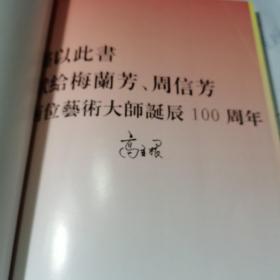 以此書
給梅蘭芳、周信芳
位藝術大師誕辰 100 周年